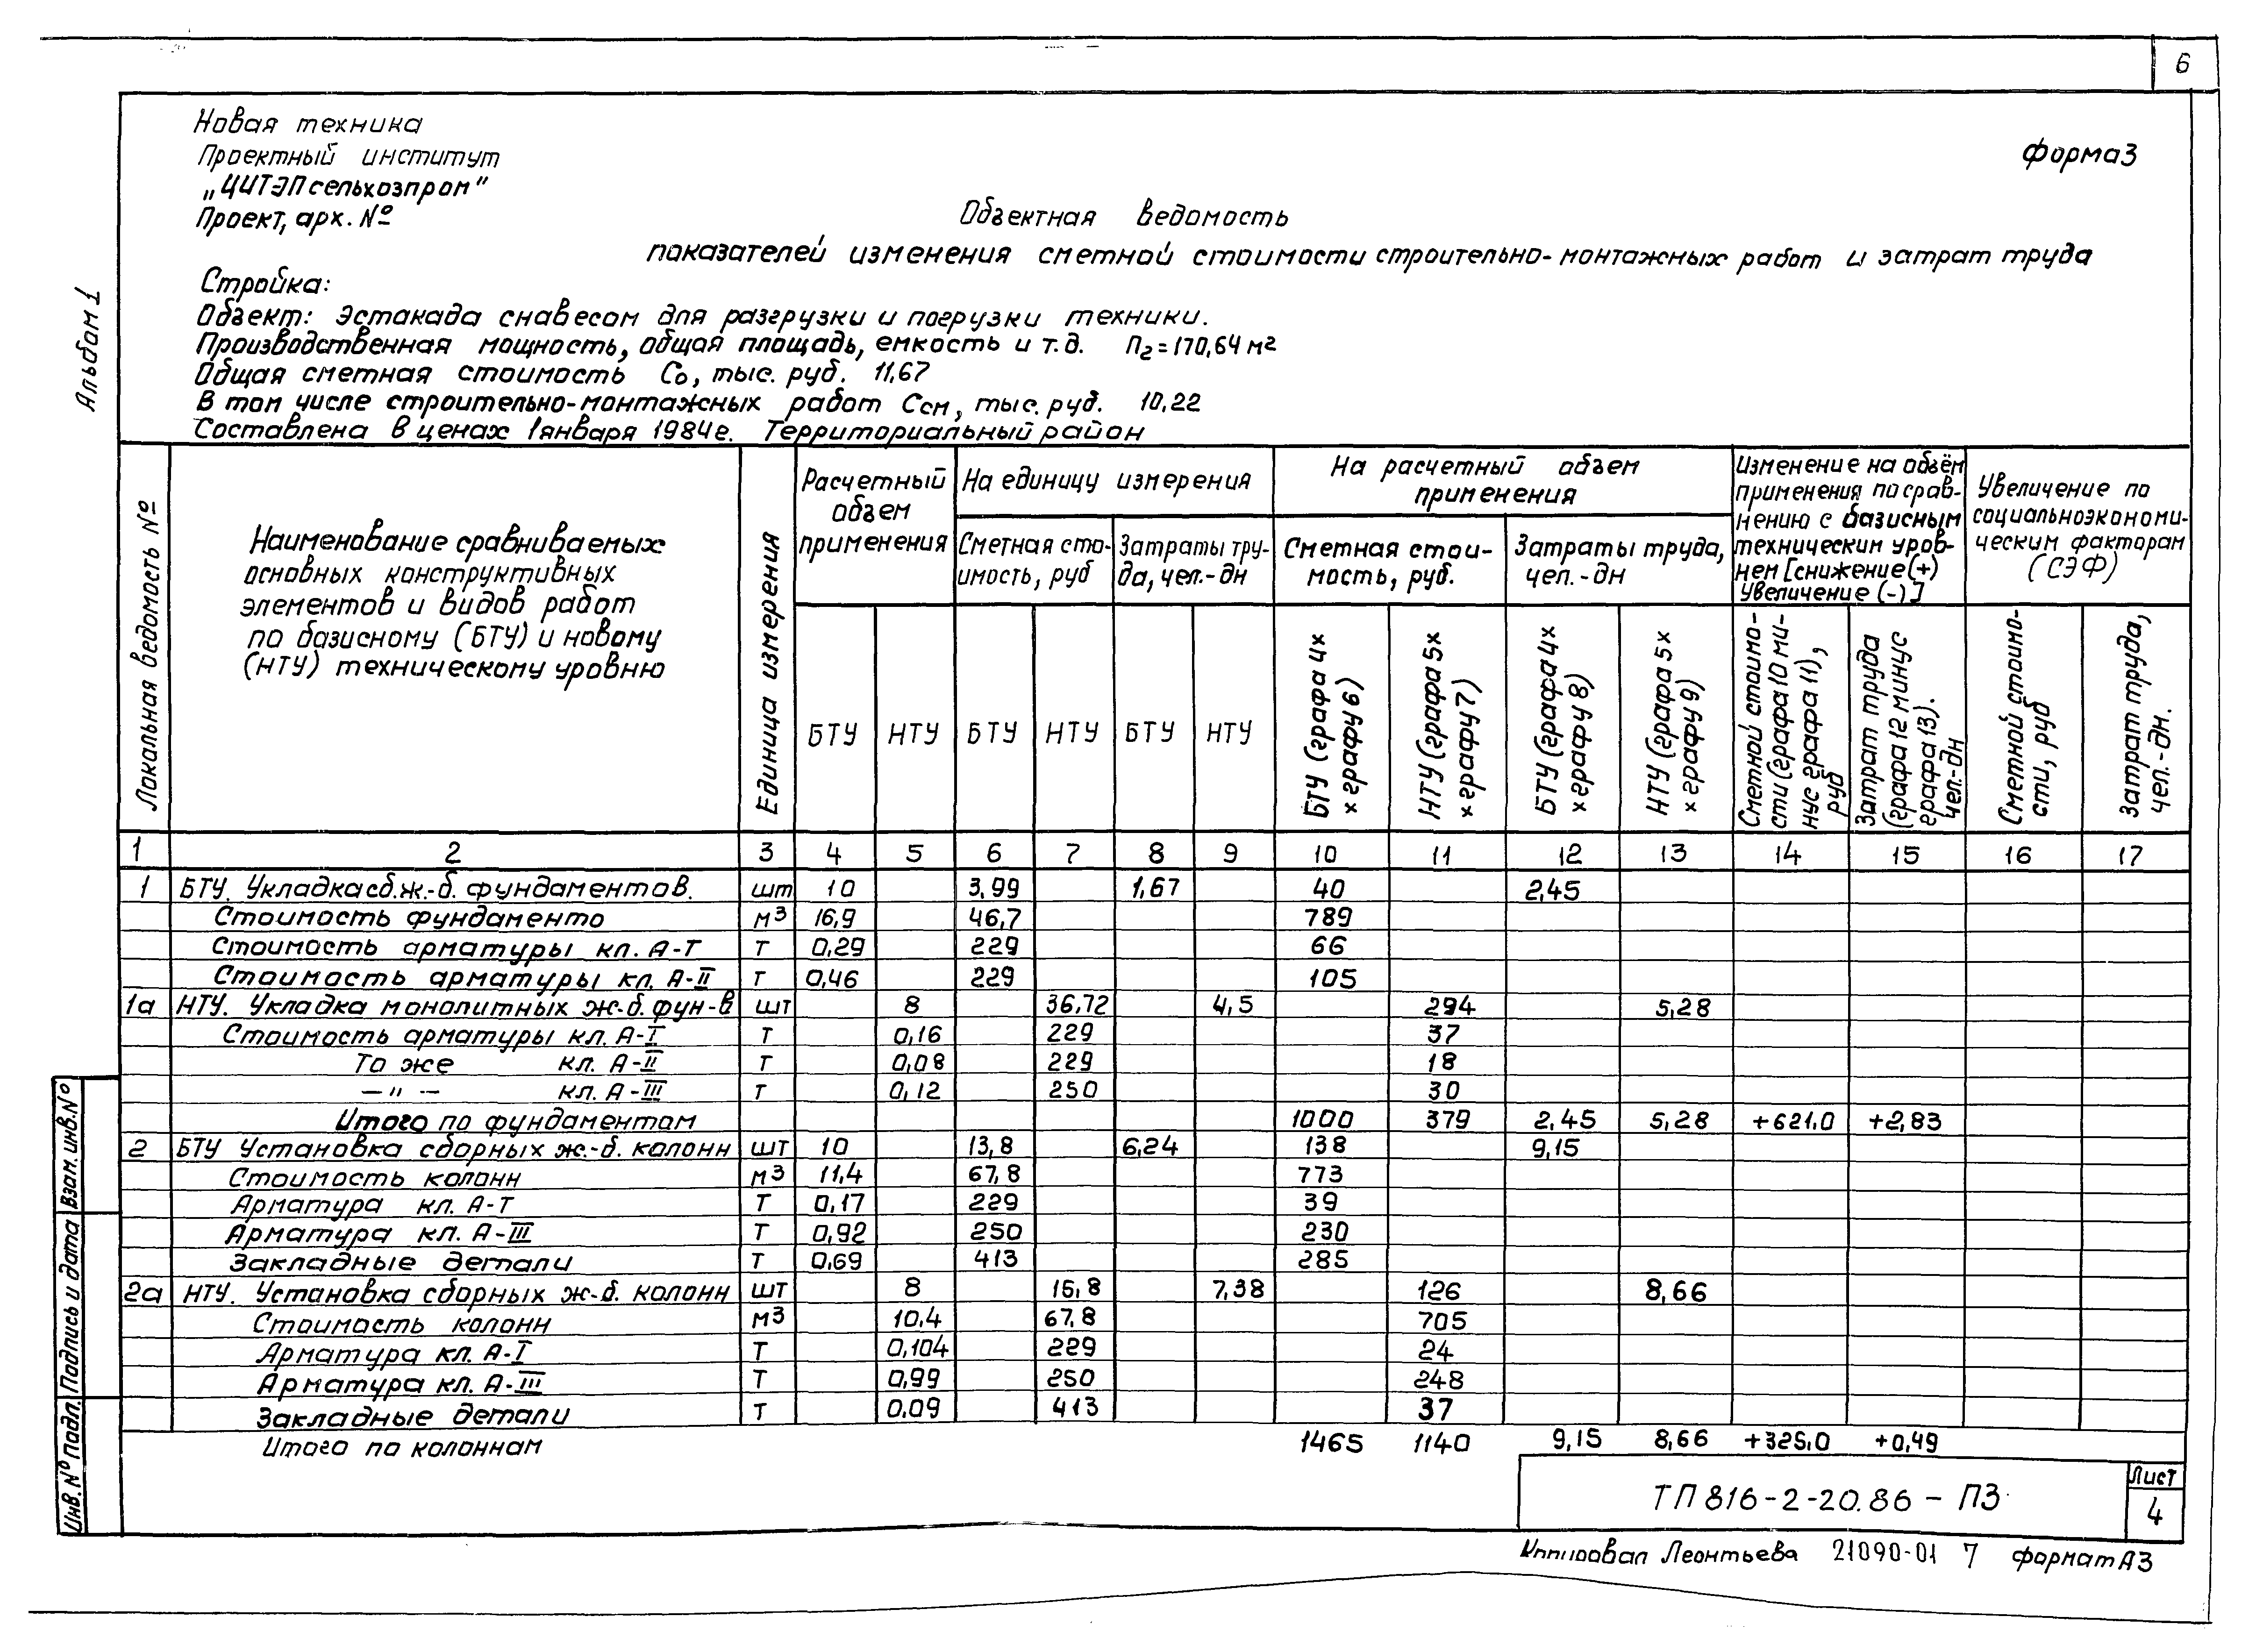 6
Новая техника
Проектный институт
„ЦИТЭПсельхозпром"
Проект, арх. №
Форма 3
Объектная ведомость
показателей изменения сметной стоимости строительно-монтажных работ и затрат труда
Стройка:
Объект: Эстакада с навесом для разгрузки и погрузки техники.
Производственная мощность, общая площадь, емкость и т.д. П2=170,64 м2
Общая сметная стоимость Со, тыс. руб. 11,67
В том числе строительно-монтажных работ Ссм, тыс. руб. 10,22
Составлена в ценах 1 января 1984г. Территориальный район
Альбом 1
Локальная ведомость №
Наименование сравниваемых
основных конструктивных
элементов и видов работ
по базисному (БТУ) и новому
(НТУ) техническому уровню
Единица измерения
Расчетный
объем
применения
БТУ НТУ
На единицу измерения
Сметная стоимость, руб
БТУ НТУ
Затраты труда, чел.-дн
БТУ НТУ
На расчетный объем
применения
Сметная стоимость, руб.
БТУ (графа 4х
х графу 6)
НТУ (графа 5х
х графу 7)
Затраты труда,
чел.-дн
БТУ (графа 4х
х графу 8)
НТУ (графа 5х
х графу 9)
Изменение на объём
применения по срав-
нению с базисным
техническим уров-
нем [снижение (+)
Увеличение (-)]
Сметной стоимо-
сти (графа 10 ми-
нус графа 11),
руб
Затрат труда
(графа 12 минус
графа 13).
чел.-дн
Увеличение по
социальноэкономи-
ческим факторам
(СЭФ)
Сметной стоимо-
сти, руб
Затрат труда,
чел.-дн.
1 2 3 4 5 6 7 8 9 10 11 12 13 14 15 16 17
1 БТУ. Укладка сб.ж.-б. фундаментов. шт 10 3,99 1,67 40 2,45
Стоимость фундаменто м3 16,9 46,7 789
Стоимость арматуры кл. А-Т Т 0,29 229 66
Стоимость арматуры кл. А-II Т 0,46 229 105
1а НТУ. Укладка монолитных ж.-б. фун-в шт 8 36,72 4,5 294 5,28
Стоимость арматуры кл. А-I Т 0,16 229 37
То же кл. А-II Т 0,08 229 18
— " — кл. А-III Т 0,12 250 30
Итого по фундаментам 1000 379 2,45 5,28 +621,0 +2,83
2 БТУ Установка сборных ж.-б. колонн шт 10 13,8 6,24 138 9,15
Стоимость колонн м3 11,4 67,8 773
Арматура кл. А-Т Т 0,17 229 39
Арматура кл. А-III Т 0,92 250 230
Закладные детали Т 0,69 413 285
2а НТУ. Установка сборных ж.-б. колонн шт 8 15,8 7,38 126 8,66
Стоимость колонн м3 10,4 67,8 705
Арматура кл. А-I Т 0,104 229 24
Арматура кл. А-III Т 0,99 250 248
Закладные детали Т 0,09 413 37
Итого по колоннам 1465 1140 9,15 8,66 +325,0 +0,49
Взам. инв. №
Подпись и дата
Инв. № Подл.
ТП 816-2-20.86 - ПЗ
Лист
4
Копировал Леонтьева 21090-01 7 Формат А3